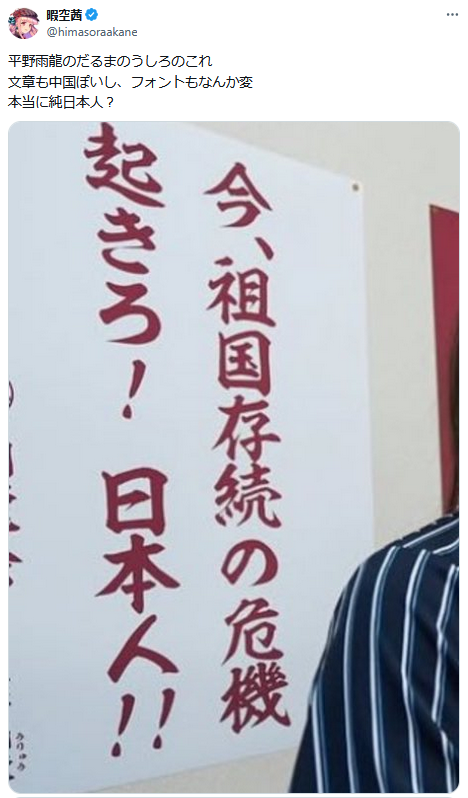 暇空茜
@himasoraakane
平野雨龍のだるまのうしろのこれ
文章も中国ぽいし、フォントもなんか変
本当に純日本人？
今、祖国存続の危機
起きろ！日本人！！
うりゅう